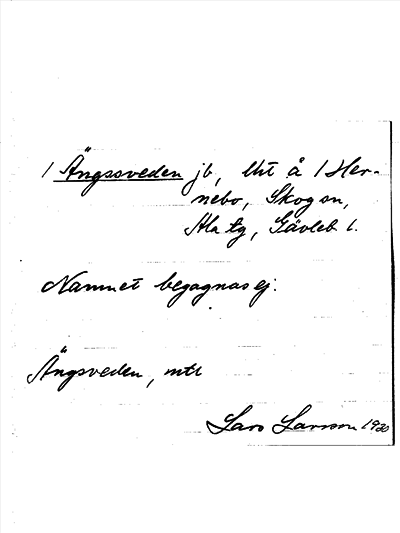 1 Ängssveden jb, lht å 1 Her-
nebo, Skog sn,
Ala tg, Gävleb l.
Namnet begagnas ej.
Ängsveden, mtl
Lars Larsson 1930